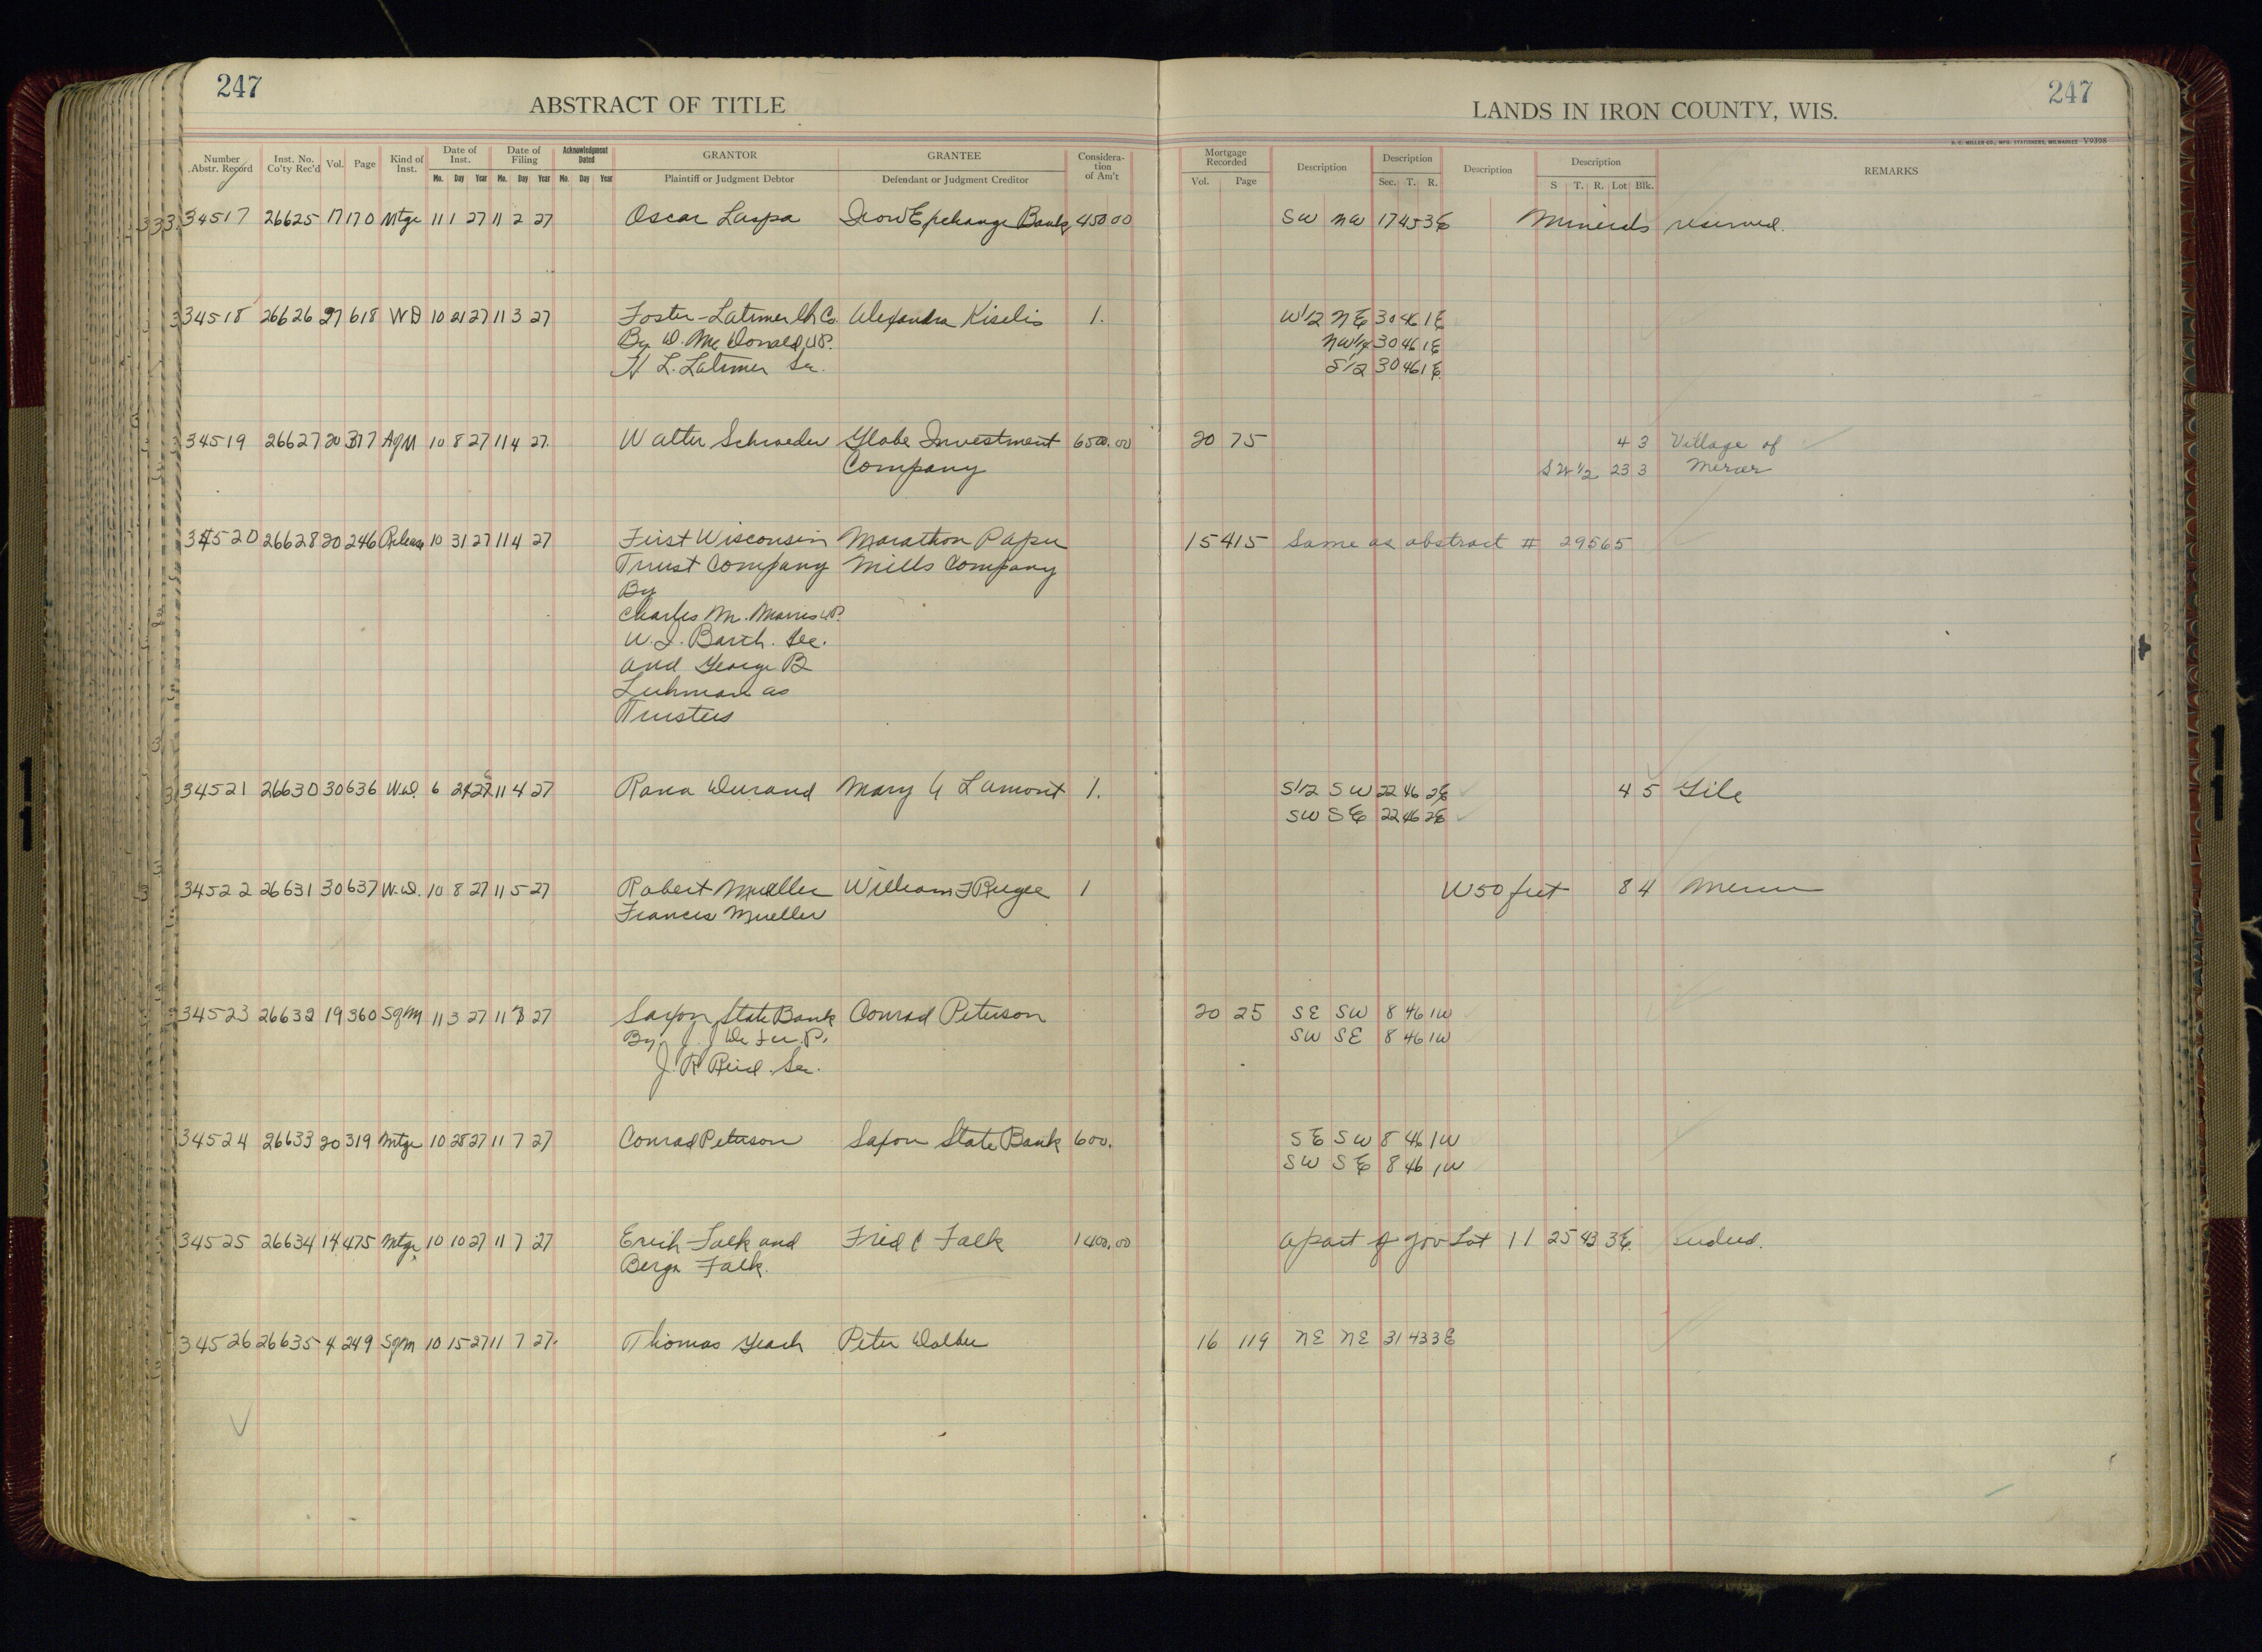 247
ABSTRACT OF TITLE
Number Abstr. Record Inst. No. Co'ty Rec'd Vol. Page Kind of Inst. Date of Inst. Mo. Day Year Date of Filing Mo. Day Year Acknowledgment Dated Mo. Day Year GRANTOR Plaintiff or Judgment Debtor GRANTEE Defendant or Judgment Creditor Considera-tion of Am't
34517 26625 17 170 Mtge 11 1 27 11 2 27 Oscar Laspa Iron Exchange Bank 450 00
34518 26626 27 618 WD 10 21 27 11 3 27 Foster-Latimer Co. Alexandra Kiselis 1.
By D. McDonald V.P.
H L. Latimer Sec.
34519 26627 20 377 AgM 10 8 27 11 4 27 Walter Schroeder Globe Investment 6500.00
Company
34520 26628 20 246 Release 10 31 27 11 4 27 First Wisconsin Marathon Paper
Trust Company Mills Company
By
Charles M. Morris V.P.
W. I. Barth. Sec.
and George B
Luhman as
Trustees
34521 26630 30 636 W.D. 6 27 11 4 27 Rana Durand Mary Lamont 1.
34522 26631 30 637 W.D. 10 8 27 11 5 27 Robert Mueller William F Rugee 1
Frances Mueller
34523 26632 19 360 SgM 11 3 27 11 27 Saxon State Bank Conrad Peterson
By J. J. De P.
J. R Reid. Sec.
34524 26633 20 319 Mtge 10 28 27 11 7 27 Conrad Peterson Saxon State Bank 600.
34525 26634 14 475 Mtge 10 10 27 11 7 27 Erich Falk and Fred C Falk 1400.00
Falk.
34526 26635 4 249 Sgm 10 15 27 11 7 27. Thomas Peter
247
LANDS IN IRON COUNTY, WIS.
H. C. MILLER CO., MFG. STATIONERS, MILWAUKEE V9398
Mortgage Recorded Vol. Page Description Description Sec. T. R. Description Description S T. R. Lot Blk. REMARKS
SW NW 17 45 3E Minerals reserved.
W1/2 NE 30 46 1E
NW1/4 30 46 1E
S1/2 30 46 1E
20 75 4 3 Village of
SW 1/2 23 3 Mercer
15 415 Same as abstract # 29565
S1/2 SW 22 46 2E 4 5 Gile
SW SE 22 46 2E
W 50 feet 8 4 Mercer
20 25 SE SW 8 46 1W
SW SE 8 46 1W
SE SW 8 46 1W
SW SE 8 46 1W
a part of Gov Lot 11 25 43 3E
16 119 NE NE 31 43 3E